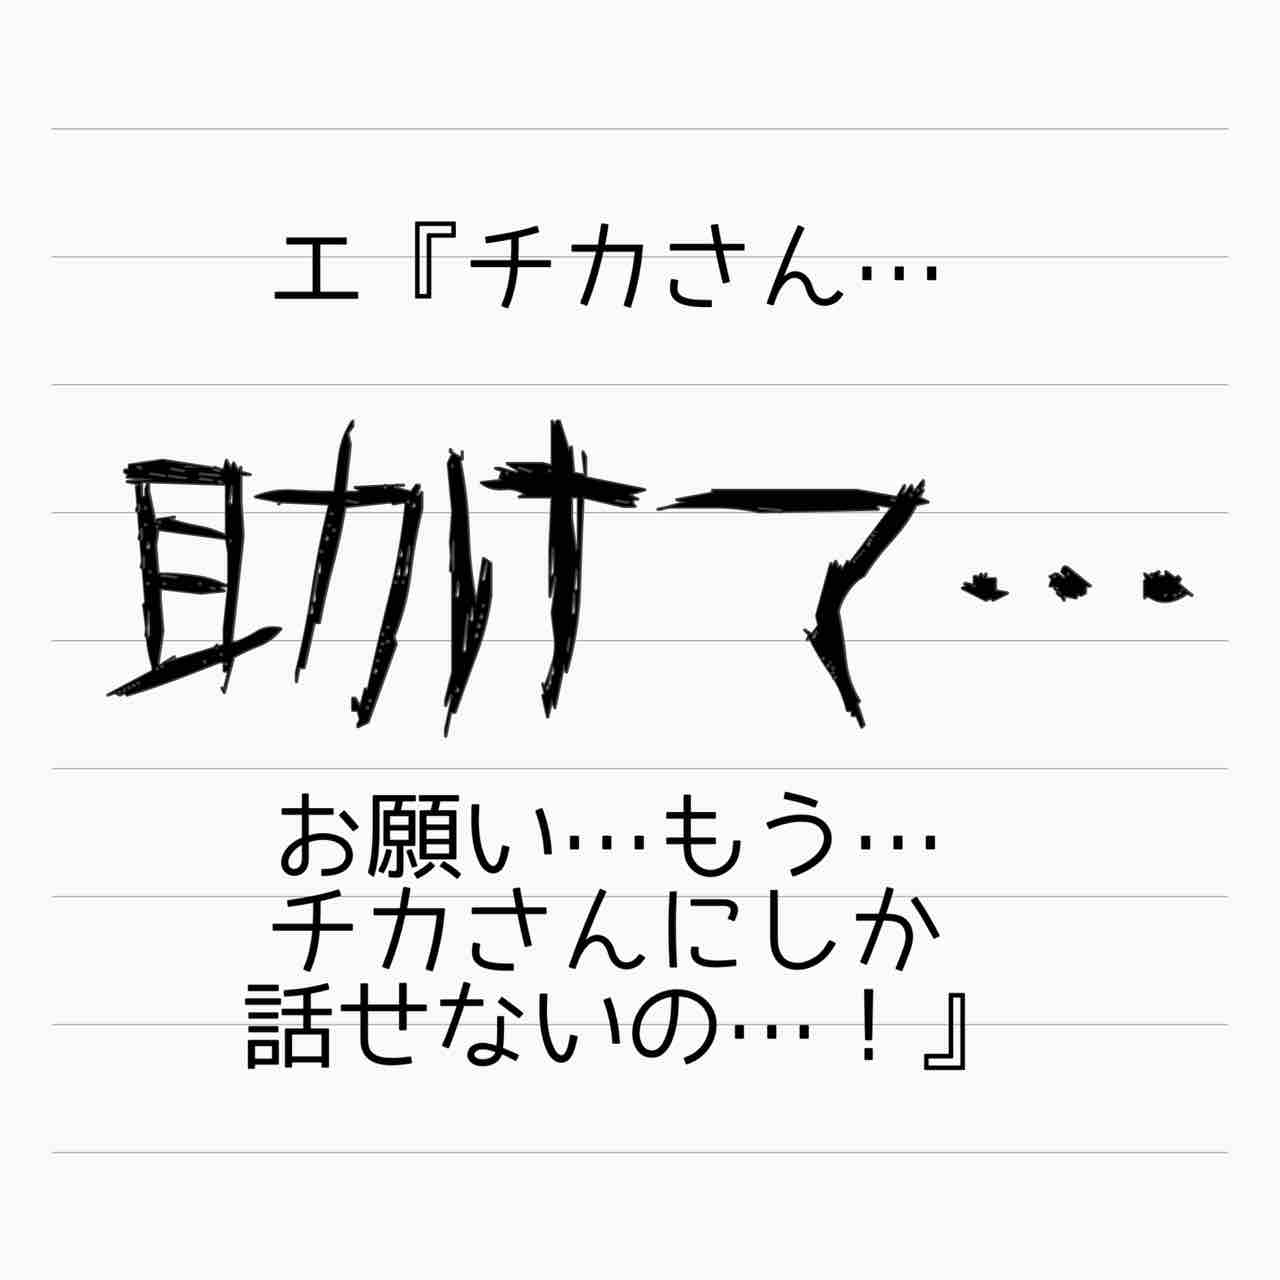 エ『チカさん…
助けて…
お願い…もう…
チカさんにしか
話せないの…！』